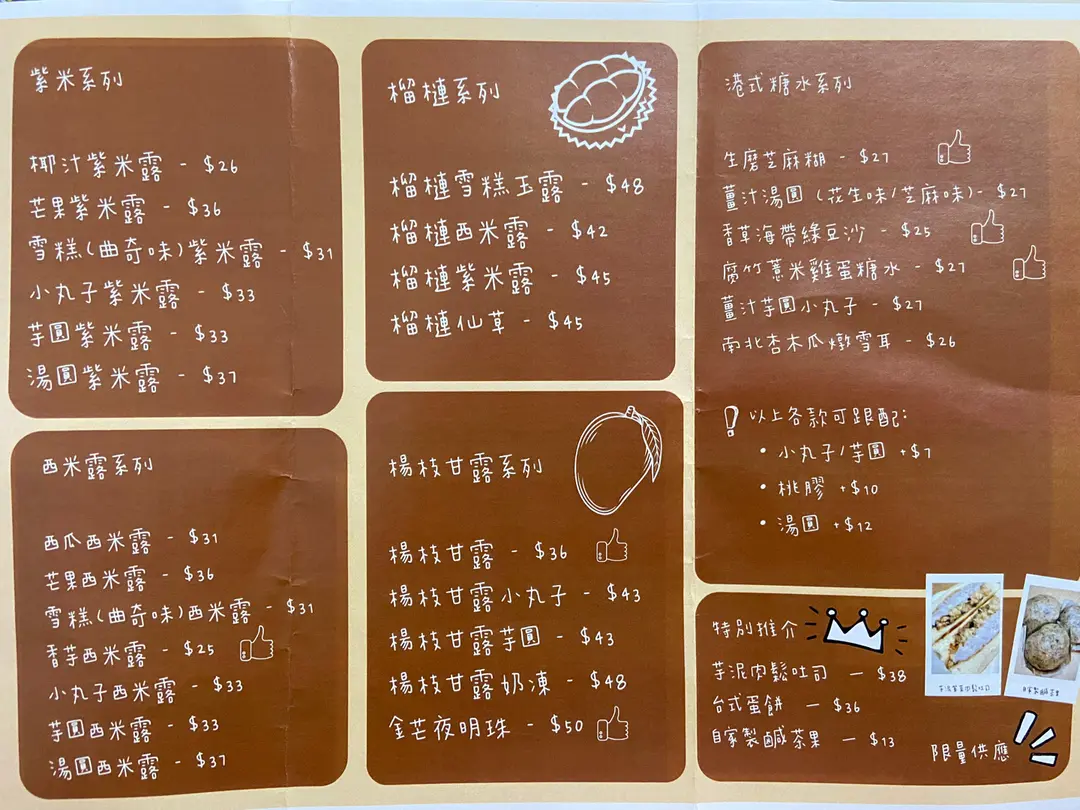 紫米系列
椰汁紫米露 - $26
芒果紫米露 - $36
雪糕(曲奇味)紫米露 - $31
小丸子紫米露 - $33
芋圓紫米露 - $33
湯圓紫米露 - $37
西米露系列
西瓜西米露 - $31
芒果西米露 - $36
雪糕(曲奇味)西米露 - $31
香芋西米露 - $25
小丸子西米露 - $33
芋圓西米露 - $33
湯圓西米露 - $37
榴槤系列
榴槤雪糕玉露 - $48
榴槤西米露 - $42
榴槤紫米露 - $45
榴槤仙草 - $45
楊枝甘露系列
楊枝甘露 - $36
楊枝甘露小丸子 - $43
楊枝甘露芋圓 - $43
楊枝甘露奶凍 - $48
金芒夜明珠 - $50
港式糖水系列
生磨芝麻糊 - $27
薑汁湯圓 (花生味/芝麻味) - $27
香草海帶綠豆沙 - $25
腐竹薏米雞蛋糖水 - $27
薑汁芋圓小丸子 - $27
南北杏木瓜燉雪耳 - $26
以上各款可跟配:
• 小丸子/芋圓 +$7
• 桃膠 +$10
• 湯圓 +$12
特別推介
芋泥肉鬆吐司 — $38
台式蛋餅 — $36
自家製鹹茶果 — $13
限量供應